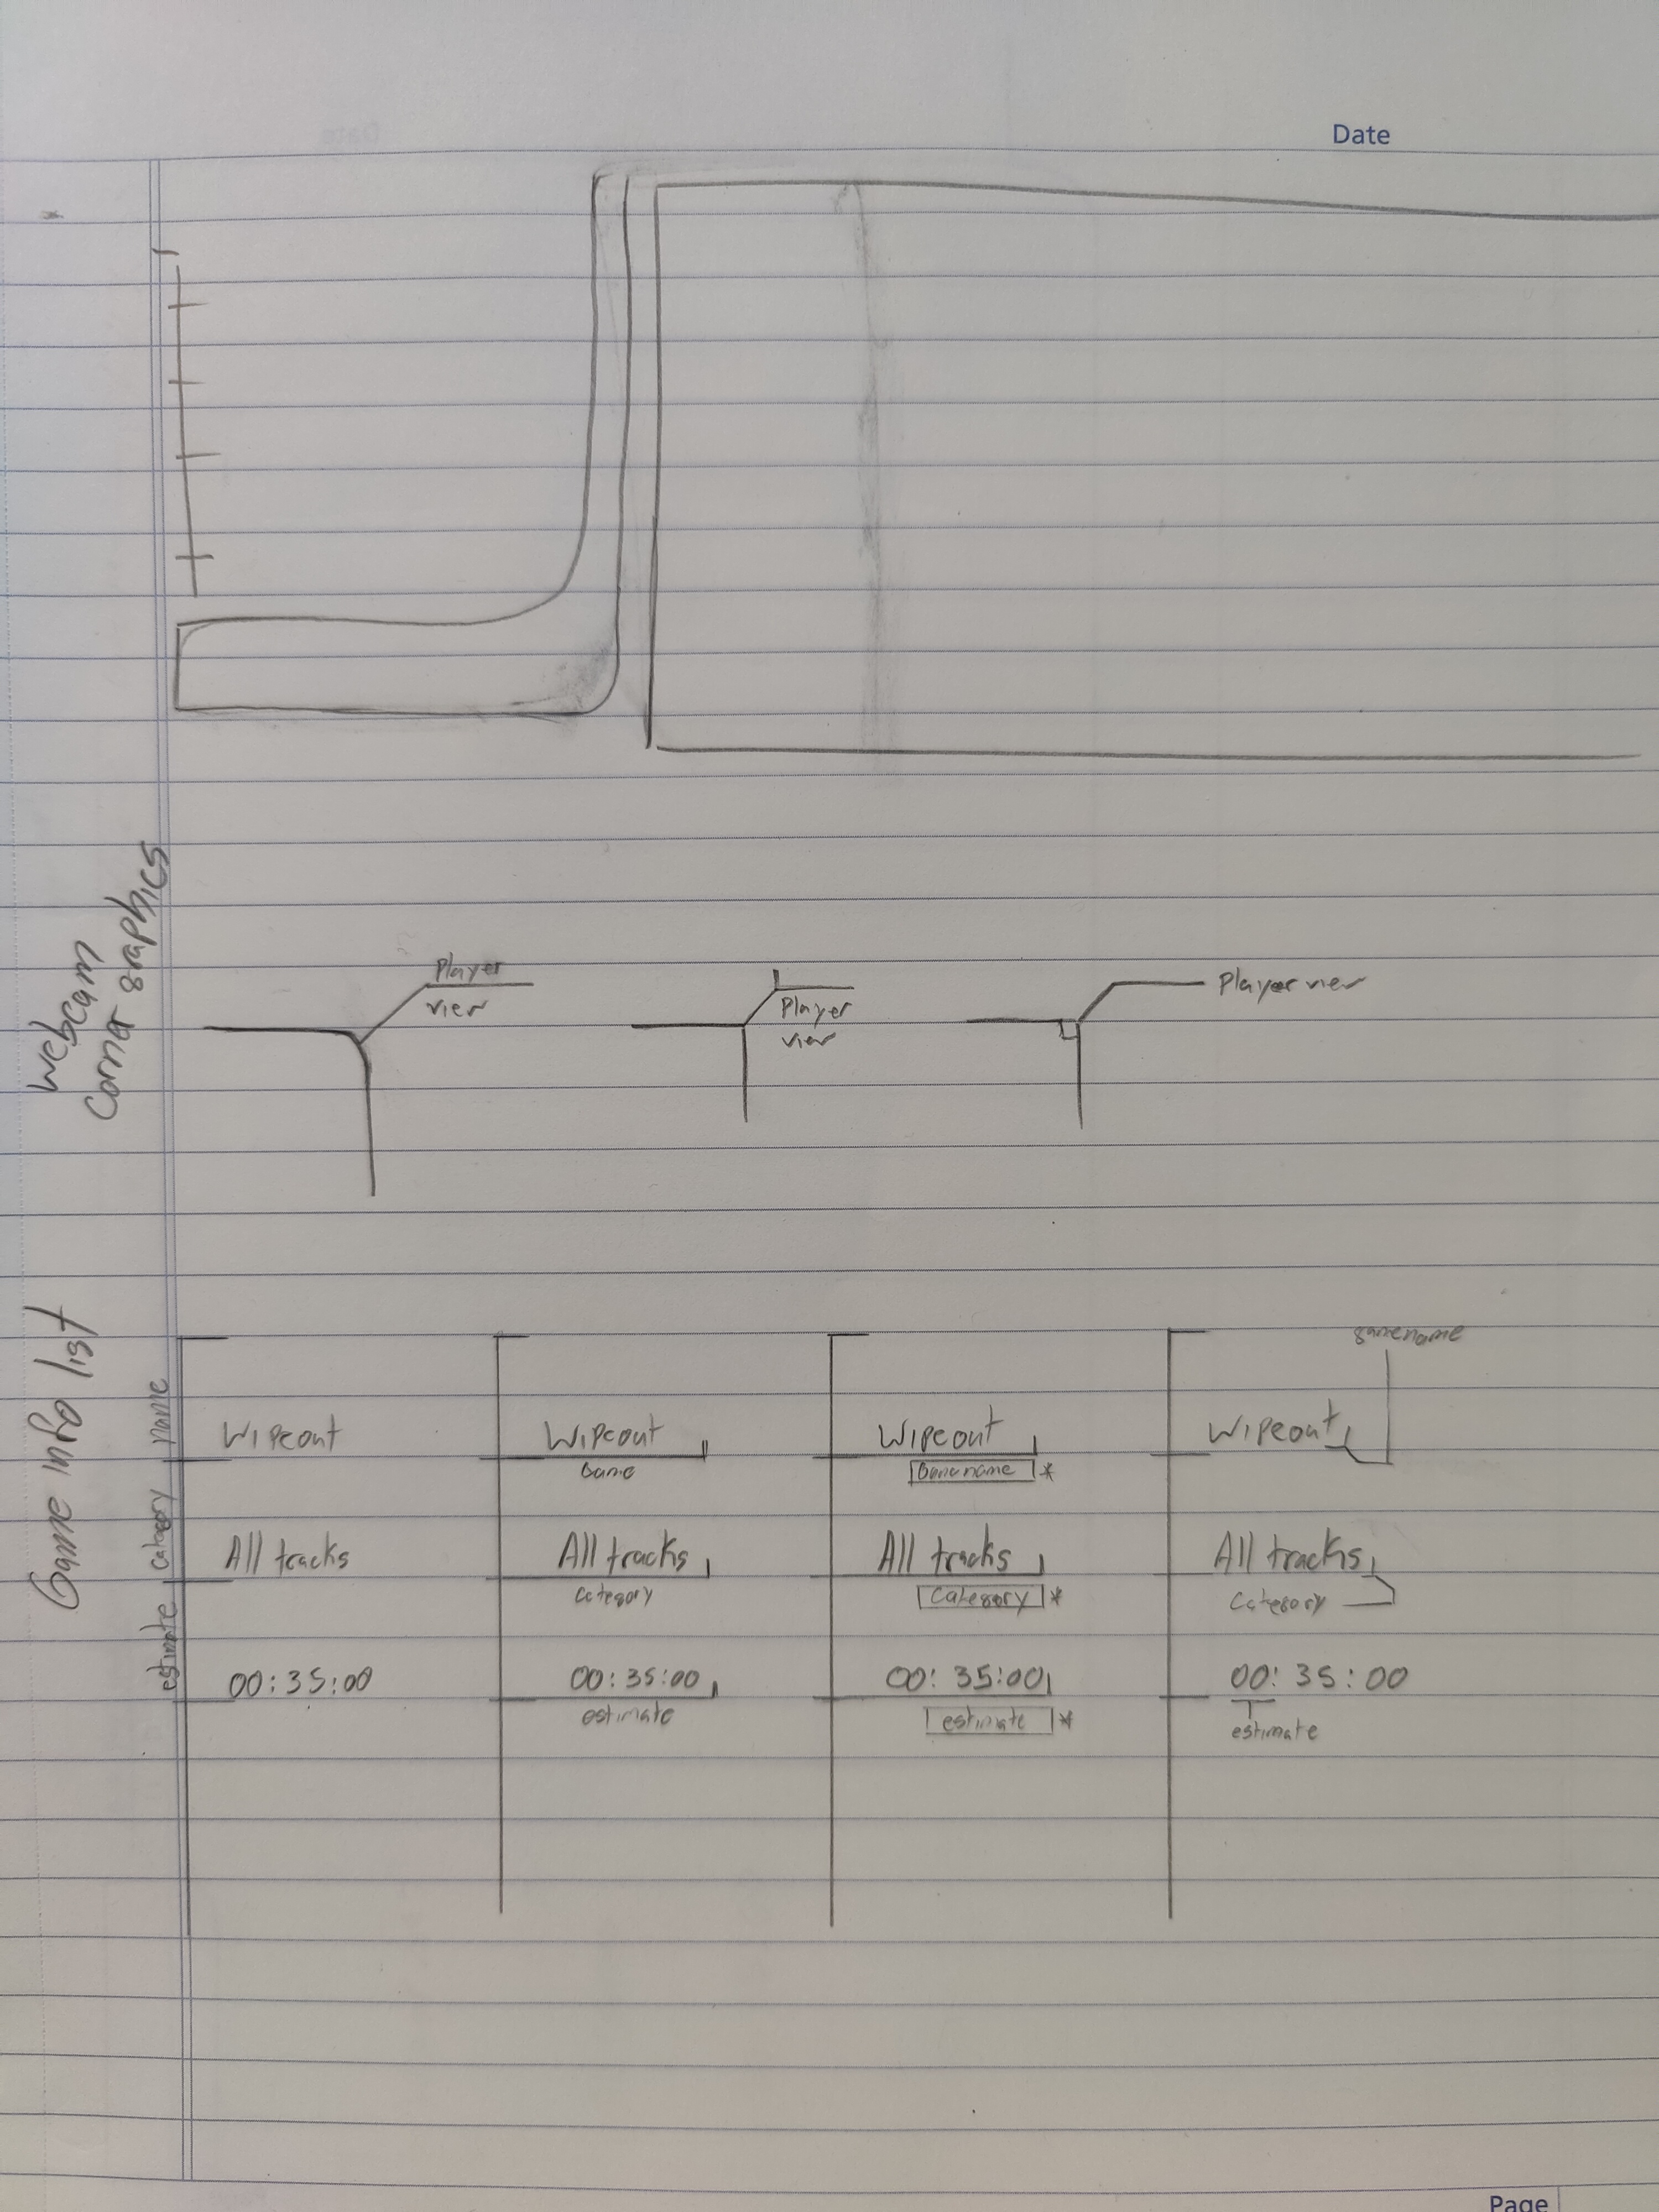 Date
Webcam
Corner graphics
Player
view
Player
view
Player view
Game info list
name
Category
estimate
Wipeout
All tracks
00:35:00
Wipeout
Game
All tracks
Category
00:35:00
estimate
Wipeout
Game name *
All tracks
Category *
00:35:00
estimate *
gamename
Wipeout
All tracks
Category
00:35:00
estimate
Page